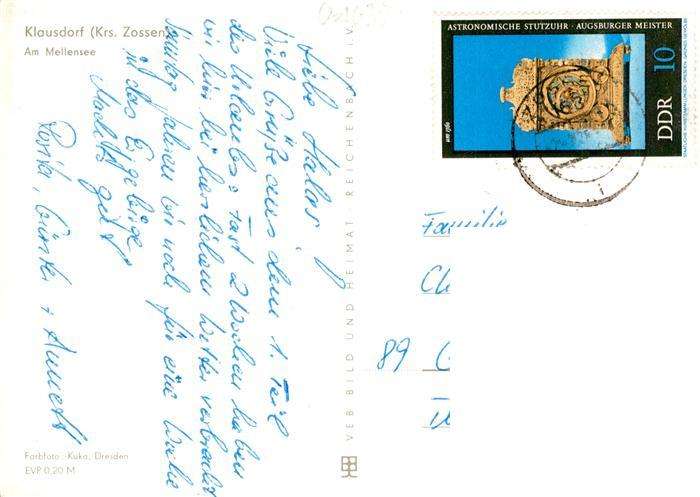 Klausdorf (Krs. Zossen)
Am Mellensee
Liebe
Viele Grüße aus dem 1. Teil
des Urlaubs. Fast 2 Wochen haben
wir hier bei herrlichem Wetter verbracht
Sonntag fahren wir noch für eine Woche
in das Erzgebirge
Macht's gut
Günter + Annett
Farbfoto: Kuka, Dresden
EVP 0,20 M
VEB BILD UND HEIMAT REICHENBACH i. V.
ASTRONOMISCHE STUTZUHR · AUGSBURGER MEISTER
um 1560
DDR 10
Familie
89